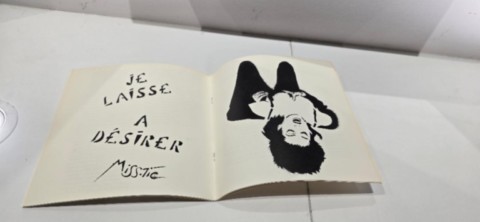 JE
LAISSE
A
DÉSIRER
Miss.Tic